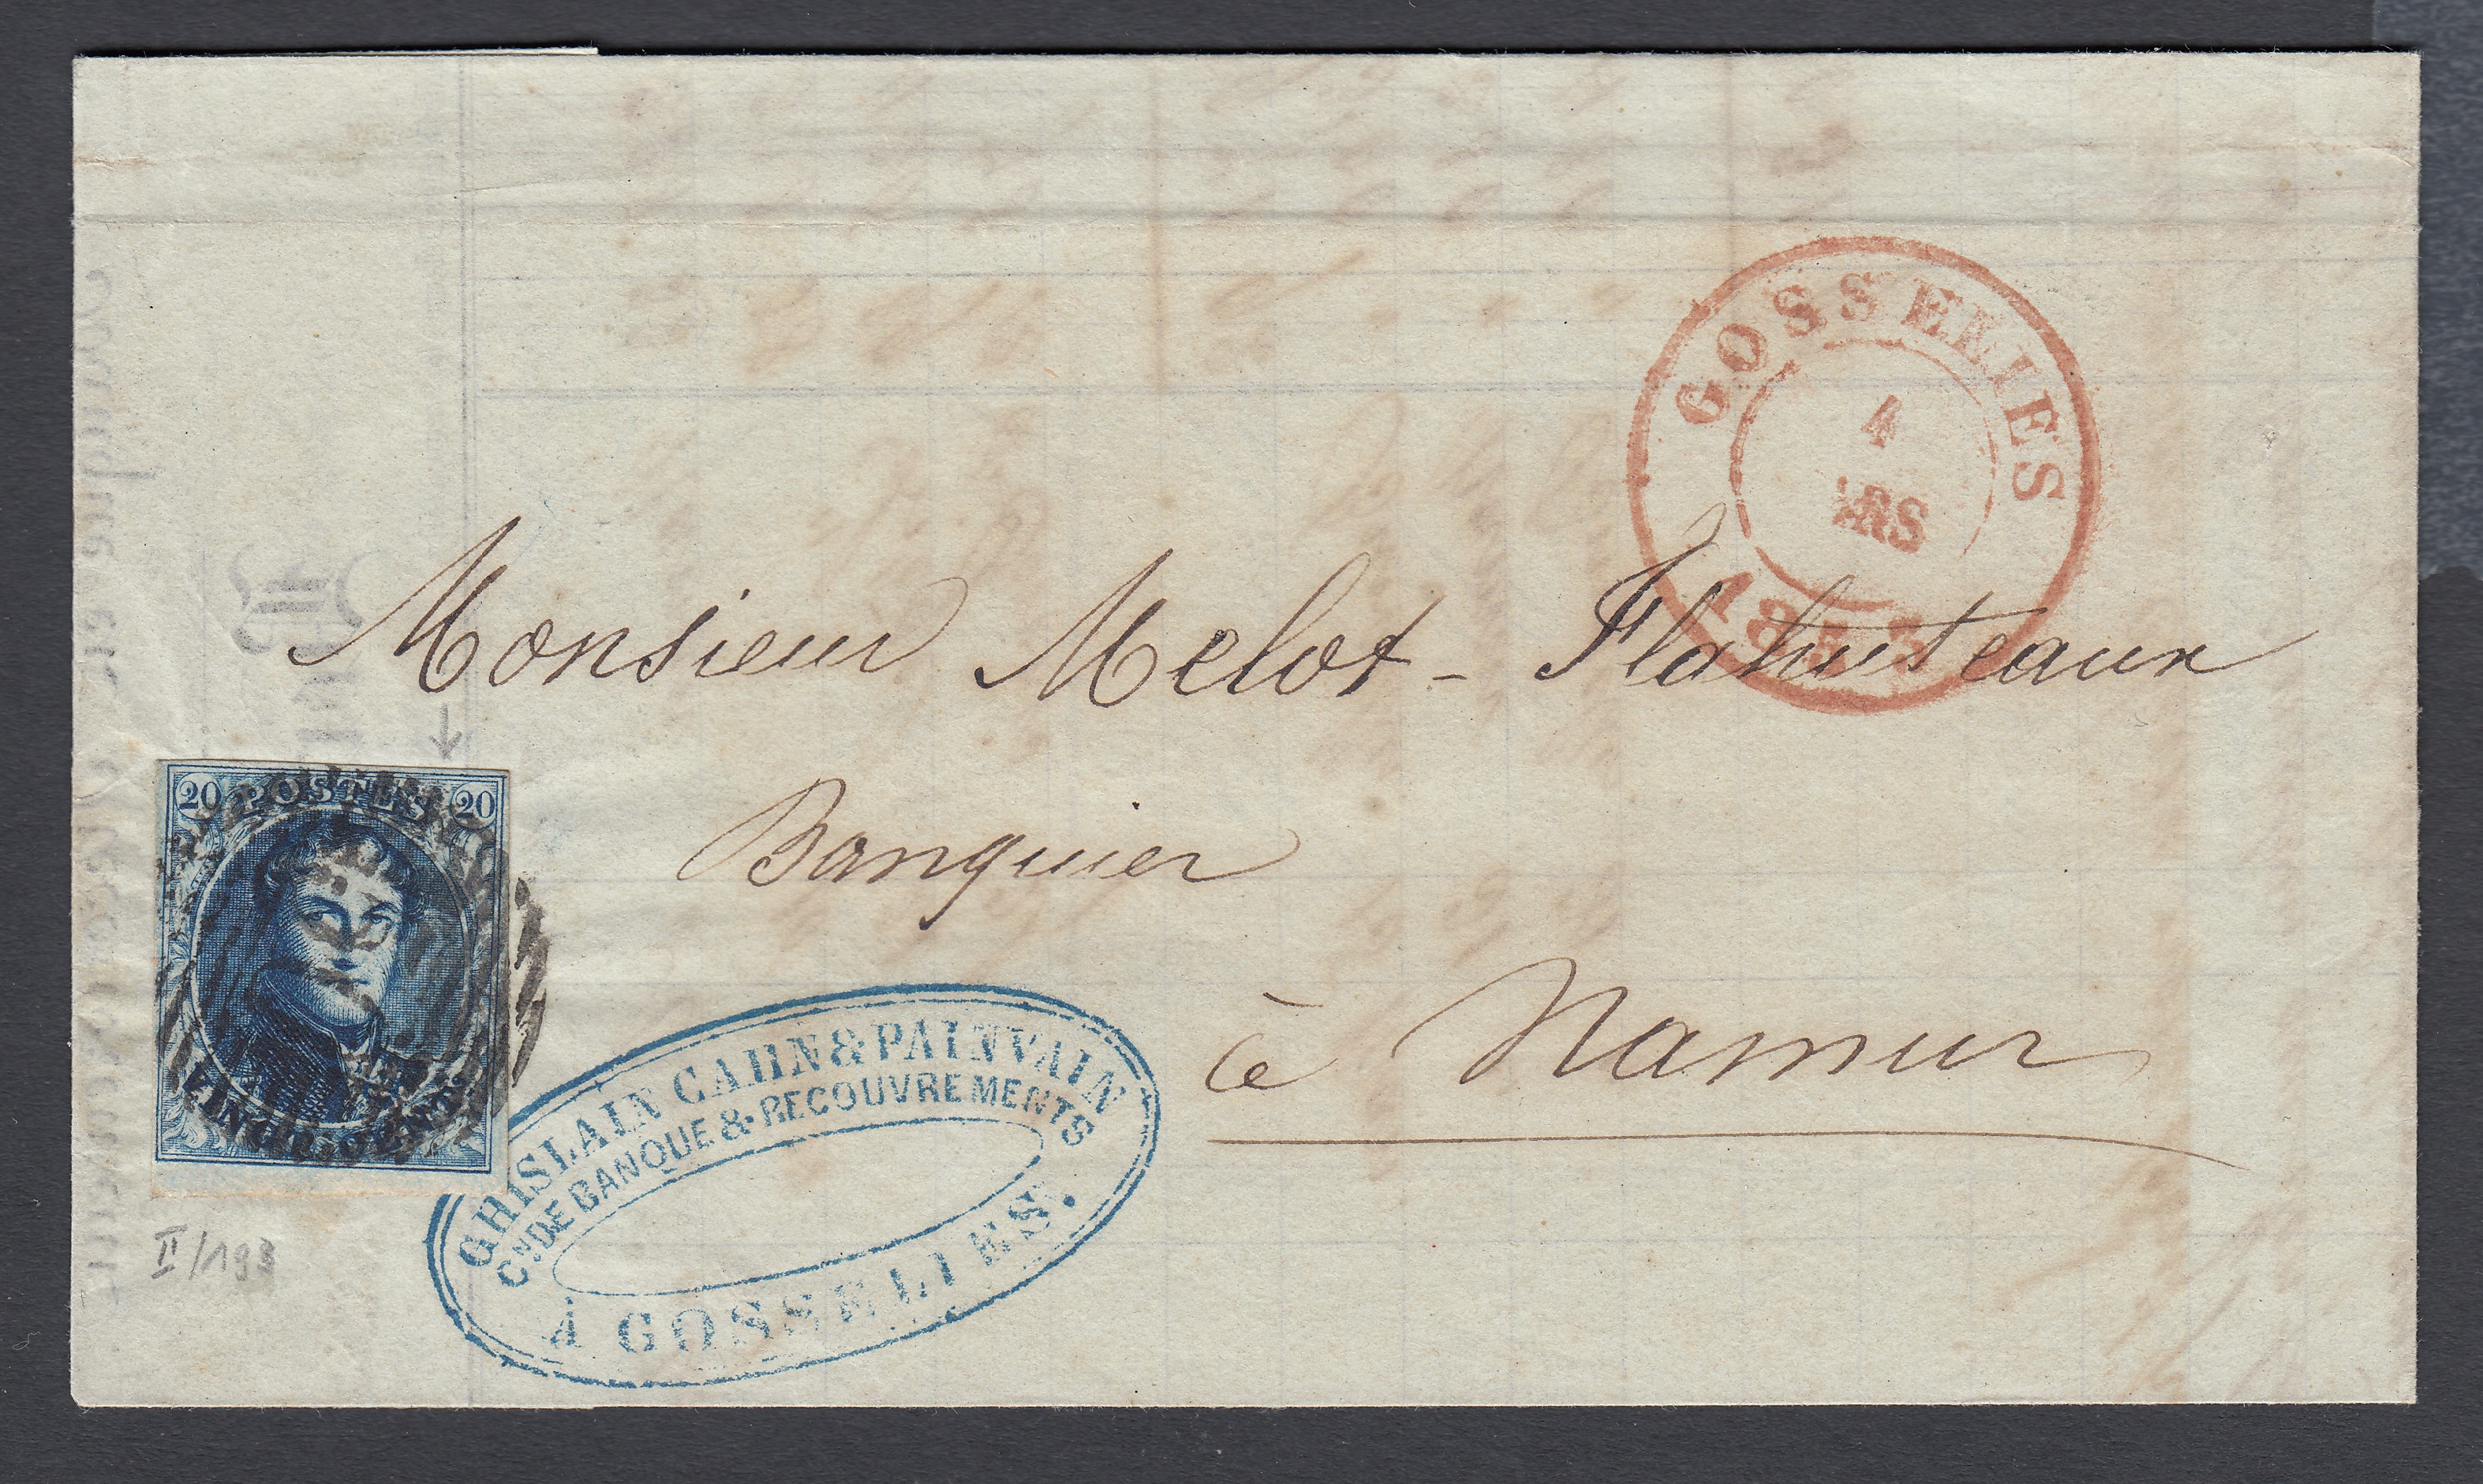 GOSSELIES
4
RS
Monsieur Melot - Flahuteaux
Banquier
à Namur
20 POSTES 20
VINGT CENTS
GHISLAIN CAHN & PAINVAIN
Cᵒⁿ DE BANQUE & RECOUVREMENTS
À GOSSELIES.
II/193